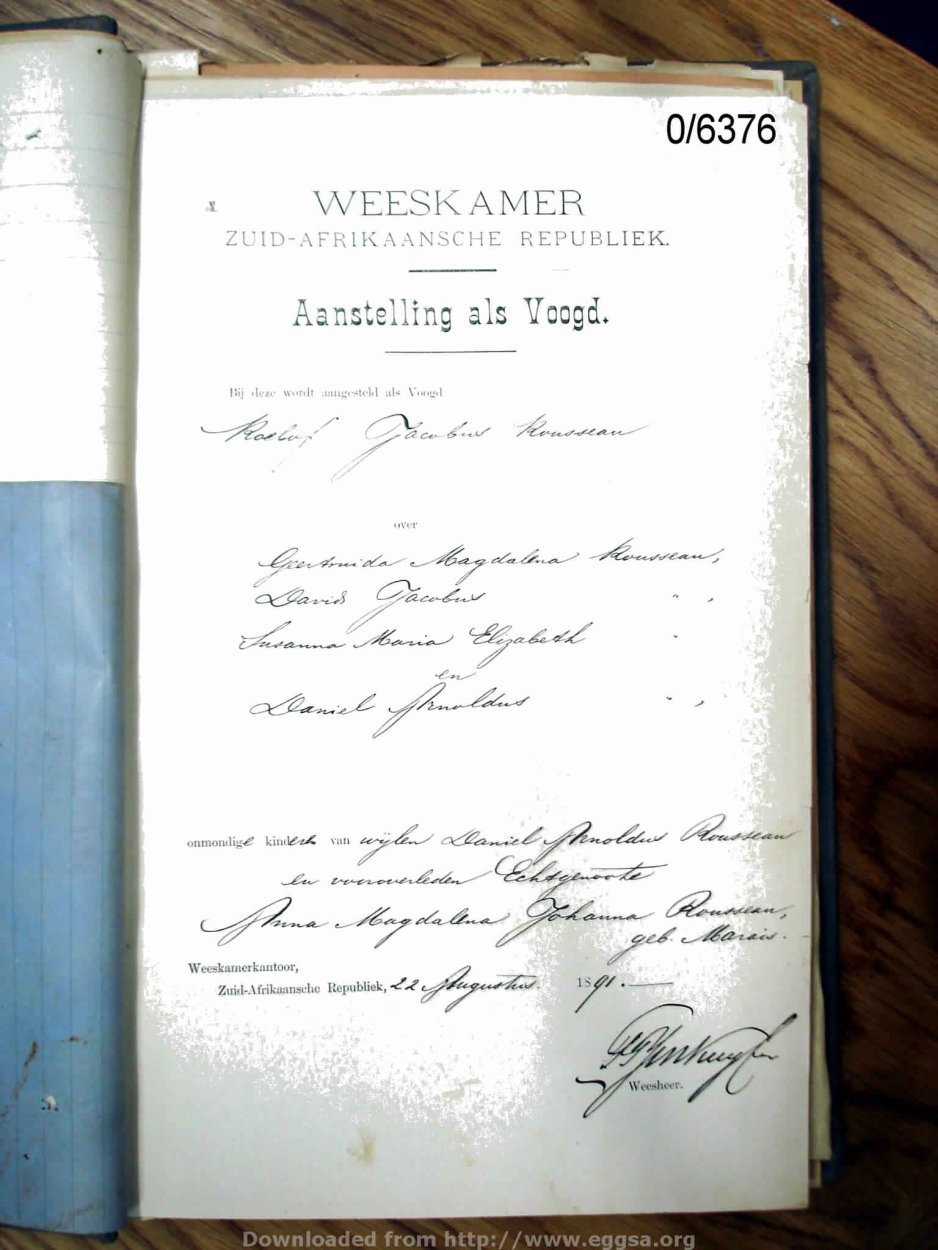 0/6376
WEESKAMER
ZUID-AFRIKAANSCHE REPUBLIEK.
Aanstelling als Voogd.
Bij deze wordt aangesteld als Voogd
Roelof Jacobus Rousseau
over
Geertruida Magdalena Rousseau,
David Jacobus " ,
Susanna Maria Elizabeth "
en
Daniel Arnoldus " ,
onmondige kinderen van wijlen Daniel Arnoldus Rousseau
en vooroverleden Echtgenoote
Anna Magdalena Johanna Rousseau,
geb. Marais.
Weeskamerkantoor,
Zuid-Afrikaansche Republiek, 22 Augustus 1891.
Weesheer.
Downloaded from http://www.eggsa.org